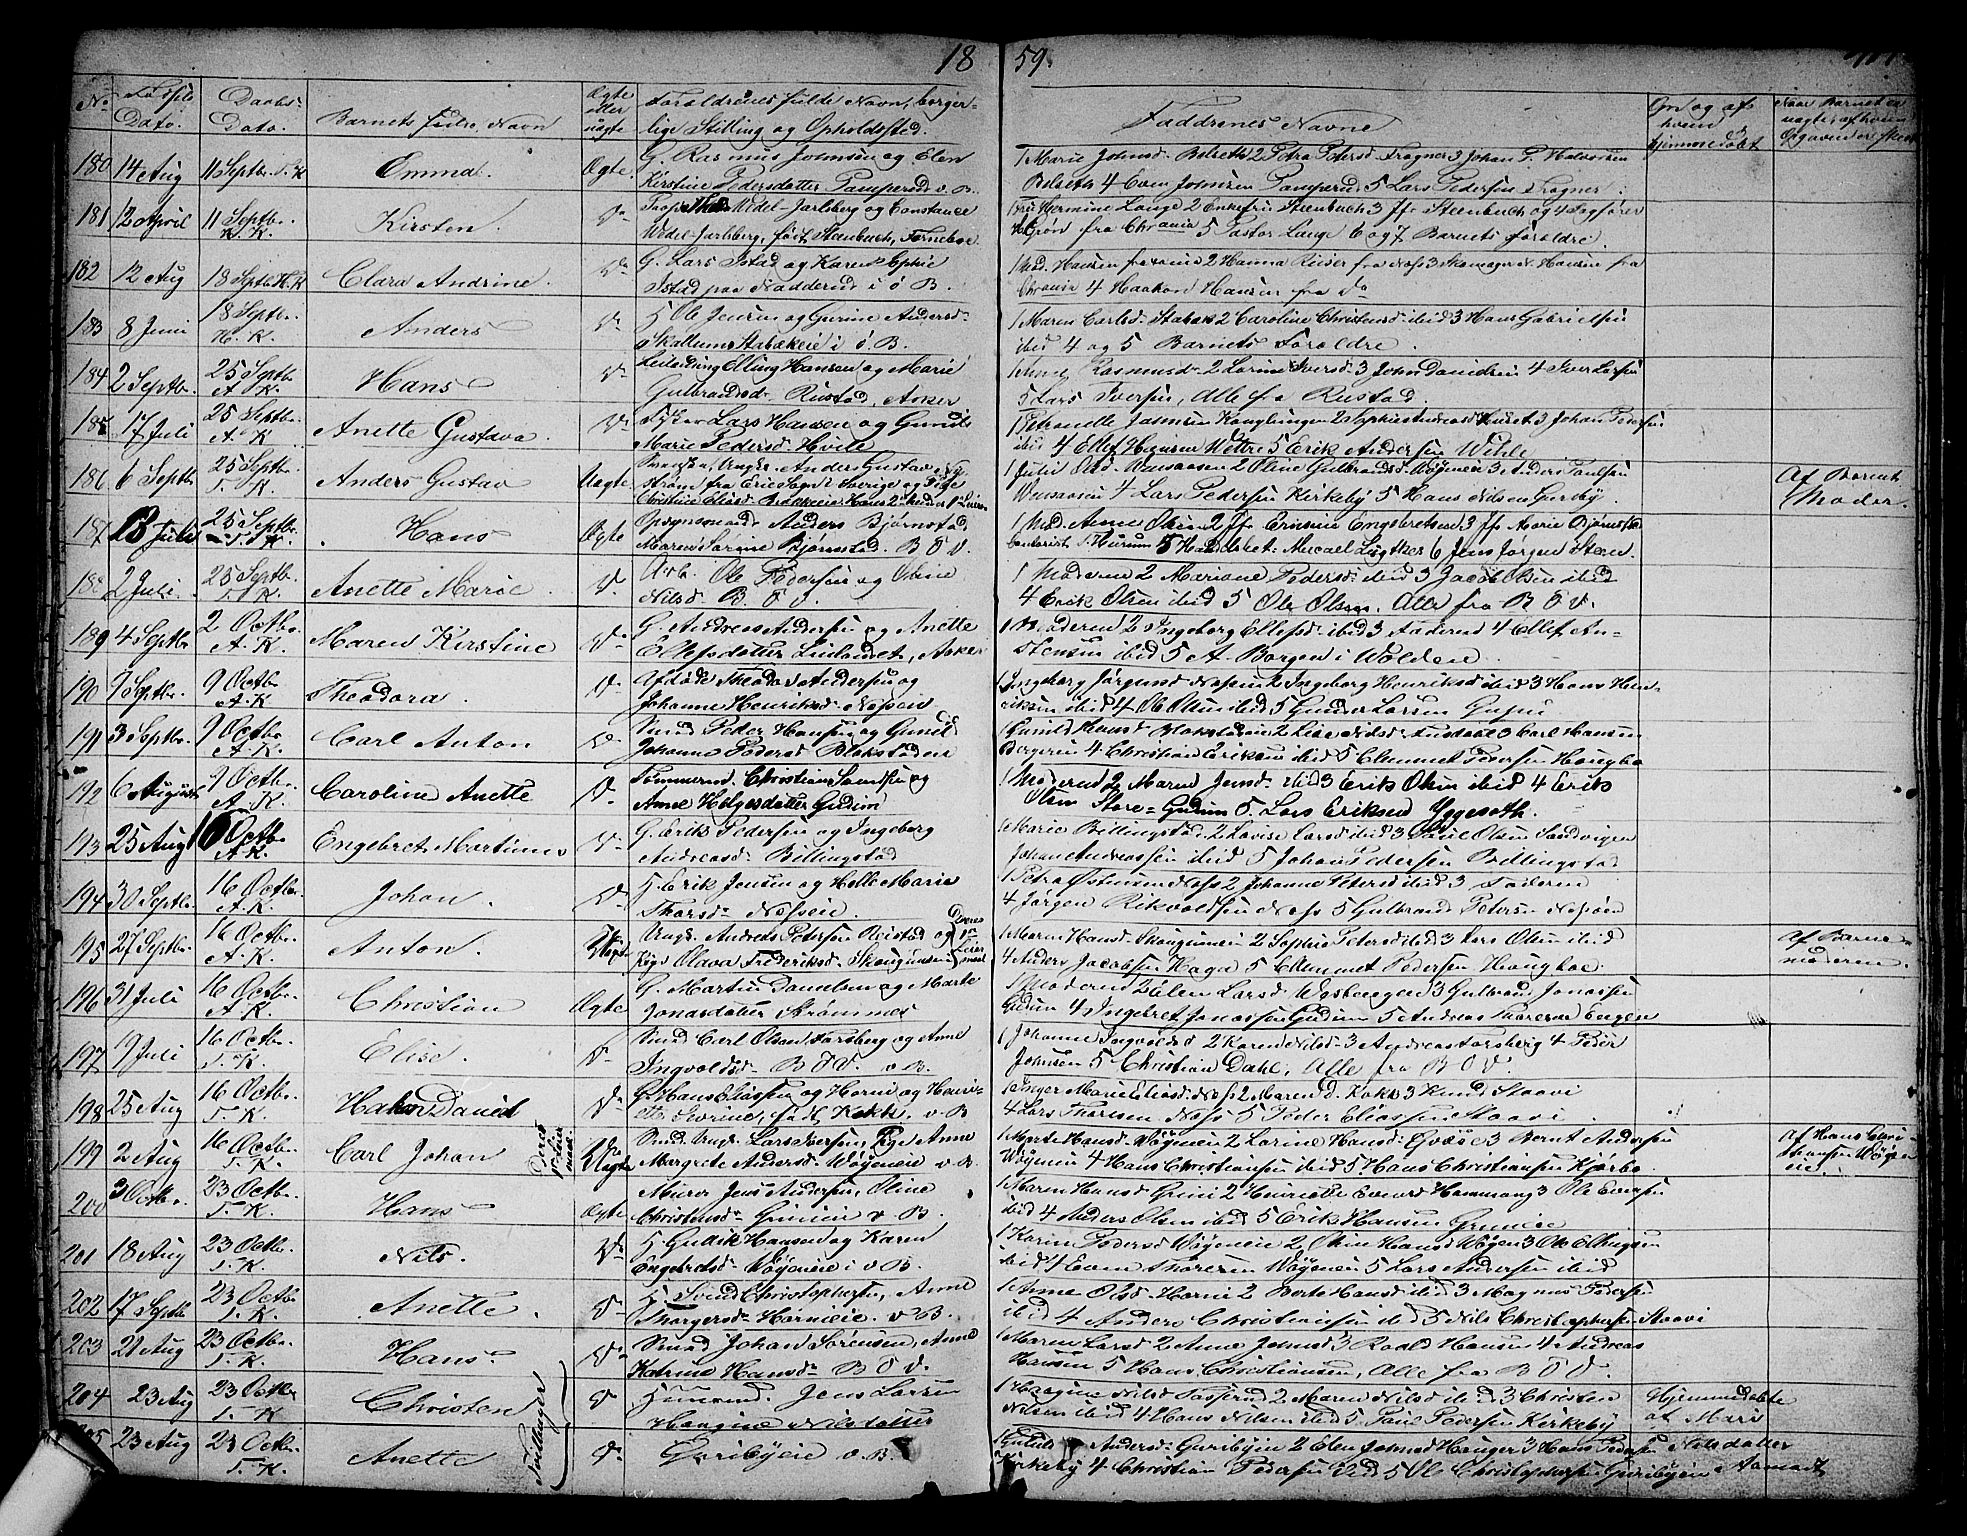 18 59.
No Fødsels Dato. Daabs Dato. Barnets fulde Navn Ægte eller uægte Forældrenes fulde Navn, borger-
lige Stilling og Opholdssted. Faddrenes Navne Om og af hvem hjemmedøbt Naar Barnet er uægte; af hvem Opgaven er skeet
180 14 Aug 11 Septbr. T. K Emma. Ægte. G. Rasmus Johnsen og Elen
Kirstine Pedersdatter Pamperud v. B.
1 Marie Johnsd. Belseth 2 Petra Petersd. Fragner 3 Johan P. Halvorsen
Belseth 4 Even Johnsen Pamperud 5 Lars Pedersen Fragner.
181 12 April 11 Septbr. H. K. Kirsten. Do Wedel-Jarlsberg og Constance
Wedel-Jarlsberg, født Steenbuch, Fornebo
1 Fru Hermine Lange 2 Enkefru Steenbuch 3 Jfr Steenbuch og 4 Sagfører
fra Chrania 5 Pastor Lange 6 og 7 Barnets Forældre.
182 12 Aug 18 Septbr. H. K Clara Andrine. Do G. Lars Istad og Karen Sophie
Istad paa Nadderud i Ø. B.
1 Mad. Hansen fra 2 Hanna Reiser fra Næss 3 Skomager N. Hansen fra
Chrania 4 Haakon Hansen fra Do
183 8 Juni 18 Septbr. H. K. Anders Do S Ole Jensen og Gurine Andersd.
Skallum Stabækeie i Ø. B.
1 Maren Carlsd. Stabæk 2 Caroline Christensd. ibid 3 Hans Gabrielsen
ibid 4 og 5 Barnets Forældre.
184 2 Septbr. 25 Septbr A. K. Hans Do Leilending Elling Hansen og Marie
Gulbrandsd. Rustad, Asker
1 Anne Rasmusd. 2 Larine Iversd. 3 John Danielsen 4 Iver Larsen
5 Lars Iversen, Alle fra Rustad.
185 17 Juli 25 Septbr. A. K. Anette Gustava. Do Fisker Lars Hansen og Gunild
Marie Pedersd. Hvile
1 Petronelle Johnsen Konglungen 2 Sophie Andreasd. Huset 3 Johan Pedersen
ibid 4 Ellef Hansen Wettre 5 Erik Andersen Wehle
186 6 Septbr 25 Septbr T. K. Anders Gustav Uægte. Svenske, Ungk. Anders Gustav Ny
strøm fra i Sverige og Pige
Christine Elisd. Bækkeeie
1 Julie Olsd. 2 Oline Gulbrandsd. Wøyeneie 3 Anders Paulsen
4 Lars Pedersen Kirkeby 5 Hans Nilsen Gjerby. Af Barnets Moder.
187 13 Juli 25 Septbr. T. K. Hans Ægte Opsynsmand Anders Bjørnstad
Maren Sørine Bjørnstad. B Ø V.
1 Mad. Anne Olsen 2 Jfr. Ericine Engebretsen 3 Jfr Marie Bjørnstad
5 Handelsbet. Micael Lystker 6 Jens Jørgen Steen.
188 2 Juli. 25 Septbr. T. K. Anette Marie. Do Arb. Ole Pedersen og Oline
Nilsd. B. Ø V.
1 Moderen 2 Mariane Pedersd. ibid 3 Jacob Olsen ibid
4 Erik Olsen ibid 5 Ole Olsen. Alle fra B Ø V.
189 4 Septbr 2 Octbr. A. K. Maren Kirstine Do G. Andreas Andersen og Anette
Ellefsdatter Lielandet, Asker
1 Moderen 2 Ingeborg Ellefsd. ibid 3 Faderen 4 Ellef An-
stensen ibid 5 A. Borgen i Wolden
190 7 Septbr. 9 Octbr A. K Theodora. Do Afdøde Theodor Andersen og
Johanne Henriksd. Næsøen
1 Ingeborg Jørgensd Næsøen 2 Ingeborg Henriksd ibid 3 Hans Hen-
riksen ibid 4 Ole Olsen ibid 5 Gunder Larsen
191 3 Septbr. 9 Octbr A. K. Carl Anton Do Smed Peder Hansen og Gunild
Johanne Pedersd Blakstadeie
1 Gunild Hansd. Blakstadeie 2 Lise Nilsd. 3 Carl Hansen
Bergerein 4 Christian Eriksen ibid 5 Clemmet Pedersen Haugbo
192 6 August 9 Octbr. A. K. Caroline Anette Do Tømmermd. Christian og
Anne Helgesdatter Gudim
1 Moderen 2 Maren Jensd. ibid 3 Erik Olsen ibid 4 Erik
Olsen Store-Gudim 5 Lars Eriksen Yggeseth.
193 25 Aug 16 Octbr A. K. Engebret Martinus Do G. Erik Pedersen og Ingeborg
Andreasd. Billingstad
1 Marie Billingstad 2 Lovise Larsd ibid 3 Paul Olsen Sandvigen
Johan Andreassen ibid 5 Johan Pedersen Billingstad
194 30 Septbr 16 Octbr. A. K. Johan. Do S. Erik Jensen og Helle Marie
Thorsd. Næsøen.
1 Petra Østensen Næss 2 Johanne Petersd ibid 3 Faderen
4 Jørgen Rikvoldsen Næss 5 Gulbrand Petersen Næsøen
195 27 Septbr. 16 Octbr. A. K Anton. Uægte Ungk. Andreas Petersen Reistad og
Pige Olava Frederiksd. Skougumseie Deres 1ste Leiermaal
1 Maren Hansd. Skougumeie 2 Sophie Petersd ibid 3 Lars Olsen ibid
4 Anders Jacobsen Hagn 5 Clemmet Pedersen Haugboe. Af Barne-
moderen.
196 31 Juli 16 Octbr A. K. Christian Ægte G. Martin Danielsen og Marte
Jonasdatter Strømmes
1 Moderen 2 Elen Larsd. 3 Gulbrand Jonassen
Gudim 4 Ingebret Jonassen Gudim 5 Andreas Engen
197 9 Juli 16 Octbr. T. K. Elise. Do Smed Carl Olsen Farsberg og Anne
Ingvoldsd. B Ø V. v B.
1 Johanne Ingvoldsd 2 Karen Nilsd. 3 Andreas Farsberg 4 Peder
Johnsen 5 Christian Dahl, Alle fra B Ø V.
198 25 Aug 16 Octbr T. K. Hakon Daniel Do G. Hans Eliassen og Horni og Henri-
ette Severine, født Kokk. v B
1 Inger Marie Eliasd. Næss 2 Maren D. Kokk 3 Knud Staavi
4 Lars Thoresen Næss 5 Peder Eliassen Staavi.
199 2 Aug 16 Octbr. T. K. Carl Johan Deres 1ste Leiermaal. Uægte Smed. Ungk. Lars Iversen, Pige Anne
Margrite Andersd. Wøyeneie v. B.
1 Marte Hansd. Wøyeneie 2 Larine Hansd. 3 Bernt Andersen
Wøyneie 4 Hans Christiansen ibid 5 Hans Christiansen Kjørbo. Af Hans Chri-
stiansen Wøyen-
eie.
200 3 Octbr. 23 Octbr T. K. Hans Ægte Murer Jens Andersen, Oline
Christensd. Grinieie v B.
1 Maren Hansd Grini 2 Henriette Eversd Hammang 3 Ole Eversen
ibid 4 Anders Olsen ibid 5 Erik Hansen Grinieie
201 18 Aug 23 Octbr. T. K. Nils. Do S Gulik Hansen og Karen
Engebretsd. Wøyeneie i v B.
1 Karine Pedersd Wøyeneie 2 Oline Hansd Wøyen 3 Ole Ellingsen
ibid 4 Even Thoresen Wøyeneie 5 Lars Andersen ibid
202 17 Septbr 23 Octbr T. K. Anette. Do S Svend Christophersen, Anne
Thorgersd. Hornieie. v B.
1 Anne Olsd. Horni 2 Berte Hansd. ibid 3 Magnus Pedersen
ibid 4 Anders Christiansen ibid 5 Nils Christophersen Staavi
203 21 Aug 23 Octbr. T. K. Hans. Do Smed Johan Sørensen, Anne
Katrine Hansd. B Ø V.
1 Maren Larsd 2 Anne Johnsd 3 Roald Hansen 4 Andreas
Hansen 5 Hans Christiansen, Alle fra B Ø V.
204 23 Aug 23 Octbr T. K Christen Do S Jens Larsen
Haagine Nilsdatter
1 Haagine Nilsd 2 Maren Nilsd ibid 3 Christen
Nilsen ibid 4 Hans Nilsen ibid 5 Paul Pedersen Kirkeby Hjemmedøbte
af Mari
205 23 Aug 23 Octbr. T. K. Anette Tvillinger Do Gjeribyeie v. B.
1 Gunild Andersd. Gjeribyeie 2 Elen Johnsd Hauger 3 Hans Pedersen Nilsdatter
Kirkeby 4 Christian Pedersen ibid 5 Ole Christophersen Gjeribyeie